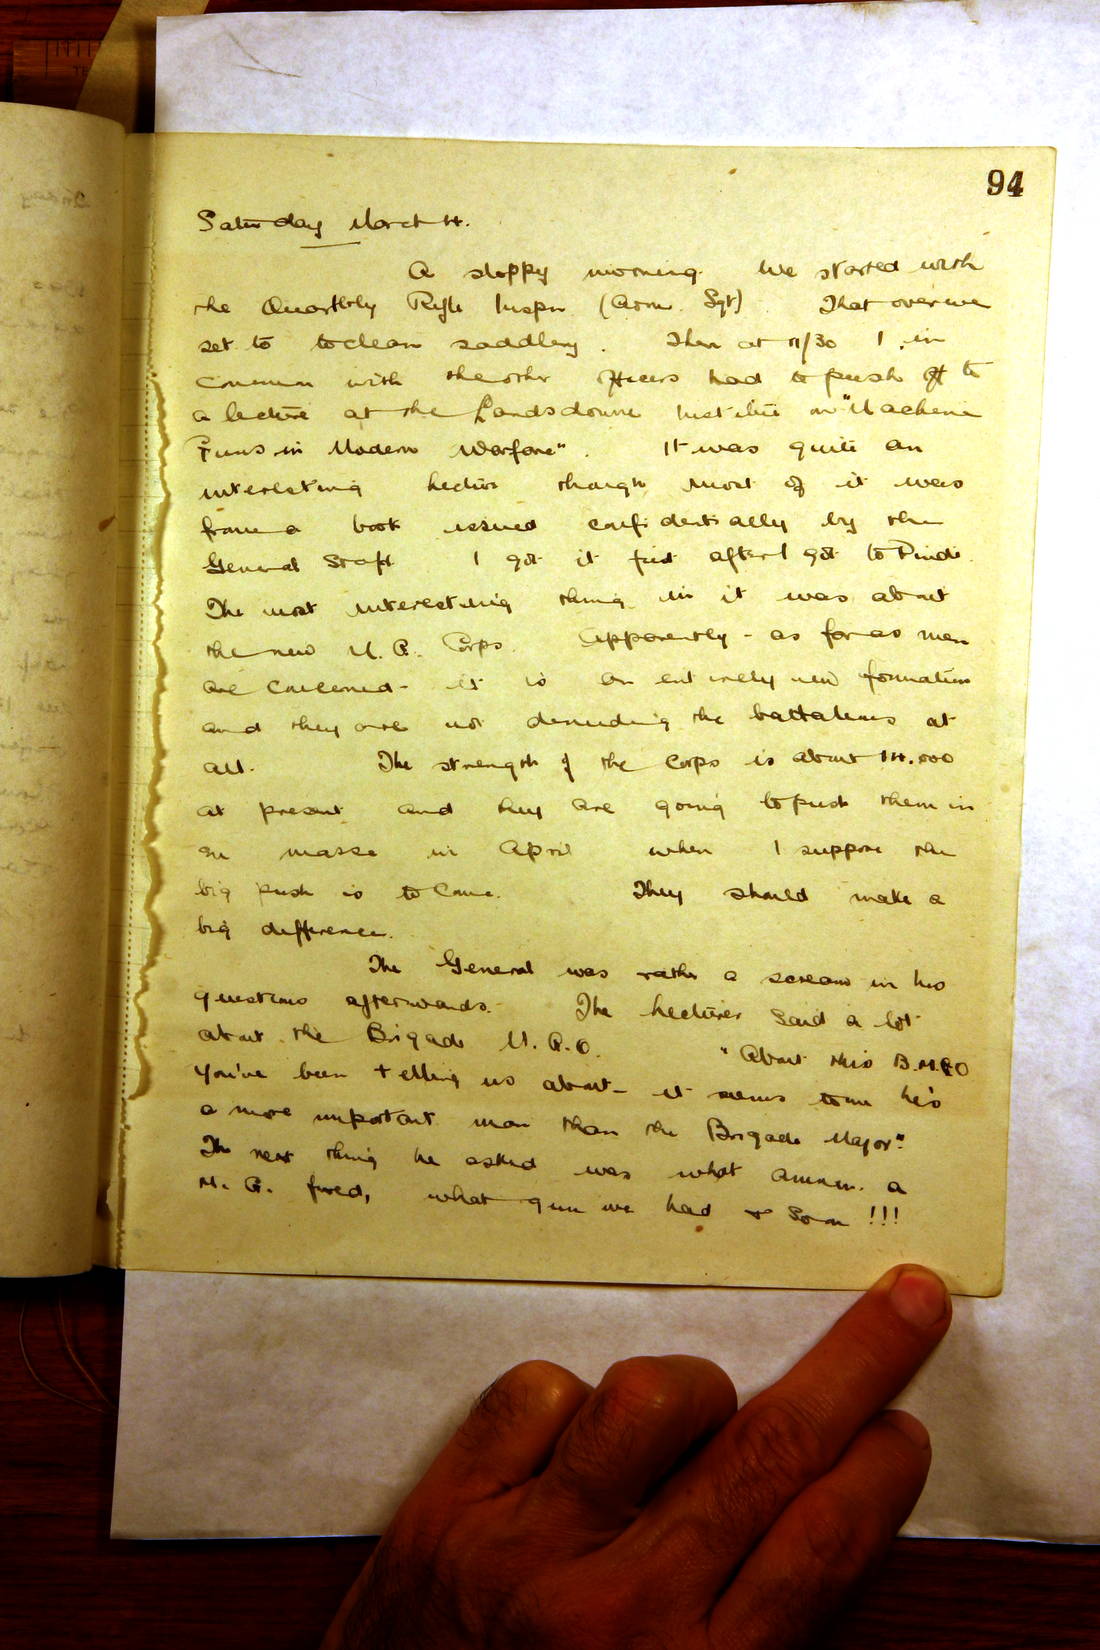 94
Saturday March 4.
A sloppy morning. We started with
the Quarthly Rifle Inspn (Arm. Sgt). That over we
set to to clean saddlery. Then at 11/30 I in
common with the other officers had to push off to
a lecture at the Landsdowne Institute on "Machine
Guns in Modern Warfare". It was quite an
interesting lecture though most of it was
from a book issued confidentially by the
General Staff. I got it just after I got to Pindi.
The most interesting thing in it was about
the new M. G. Corps. Apparently - as far as men
are concerned - it is an entirely new formation
and they are not denuding the battalions at
all. The strength of the Corps is about 14.000
at present and they are going to push them in
en masse in April when I suppose the
big push is to come. They should make a
big difference.
The General was rather a scream in his
questions afterwards. The lecturer said a lot
about the Brigade M. G. O. "About this B.M.GO
you've been telling us about - it seems to me he's
a more important man than the Brigade Major".
The next thing he asked was what ammn. a
M. G. fired, what gun we had & so on !!!